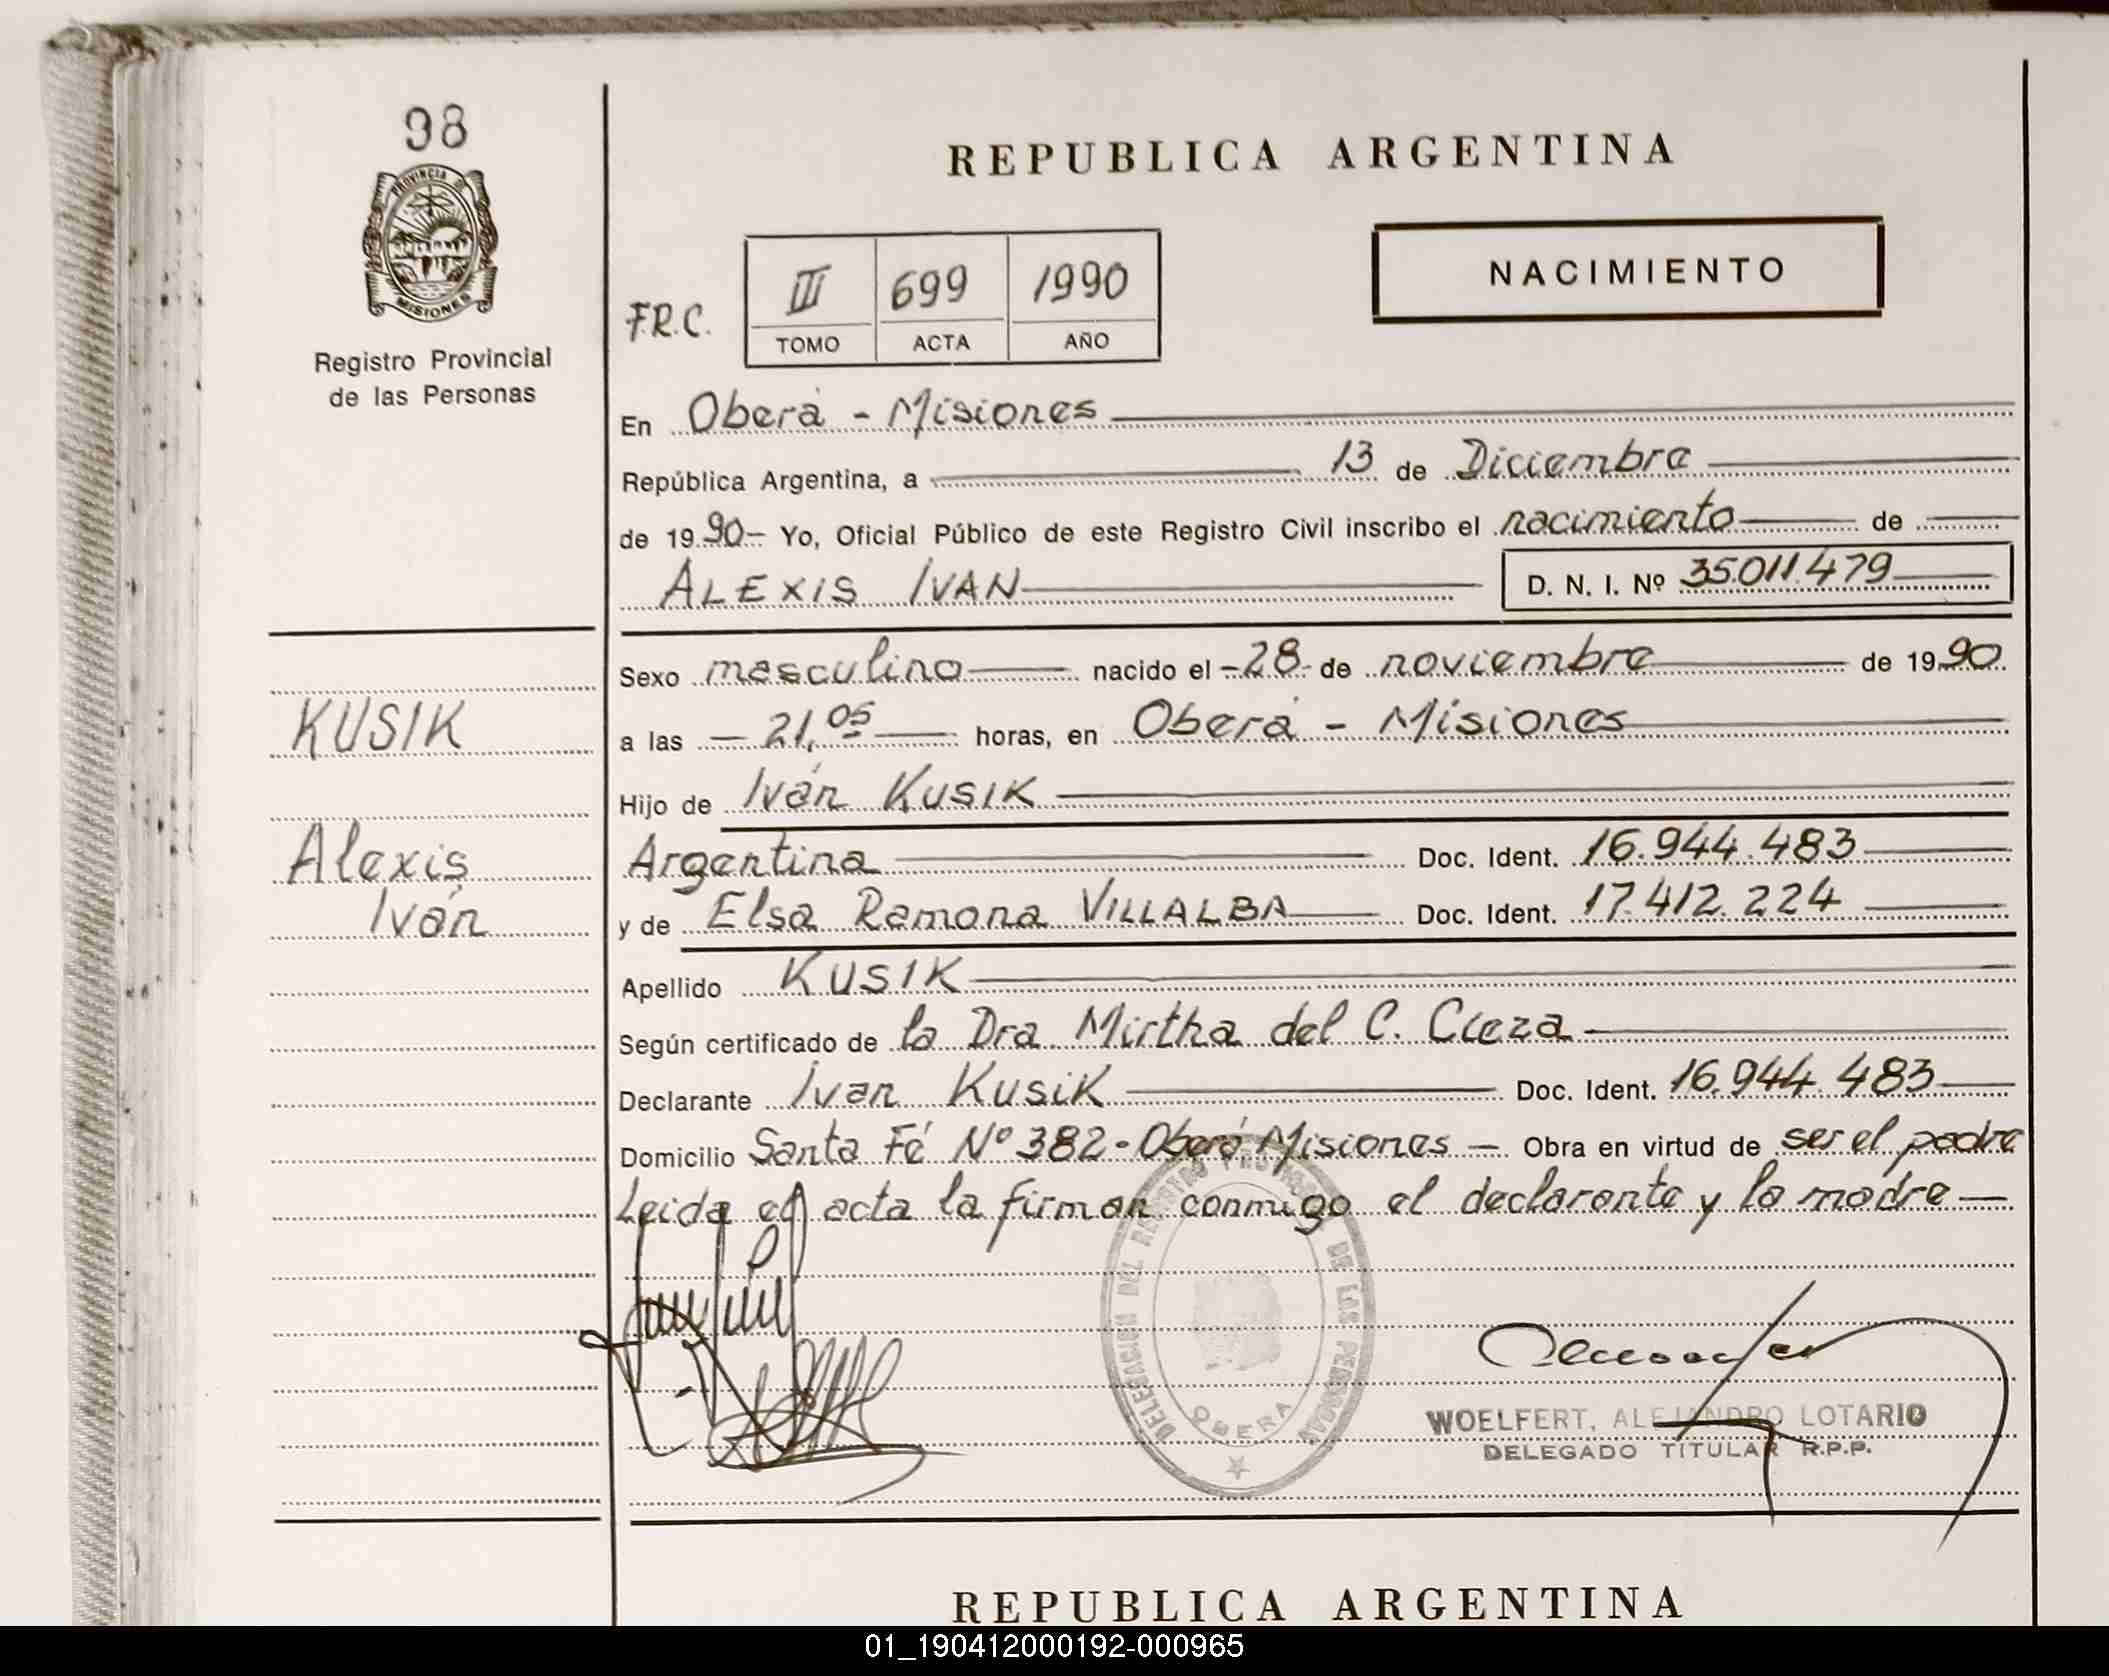 98
PROVINCIA DE
MISIONES
Registro Provincial
de las Personas
REPUBLICA ARGENTINA
NACIMIENTO
F.R.C.
III 699 1990
TOMO ACTA AÑO
En Oberá - Misiones
República Argentina, a 13 de Diciembre
de 1990- Yo, Oficial Público de este Registro Civil inscribo el nacimiento de
ALEXIS IVAN D. N. I. Nº 35.011.479
Sexo masculino nacido el -28- de noviembre de 1990
KUSIK
a las - 21,05 horas, en Oberá - Misiones
Hijo de Iván KUSIK
Alexis
Iván
Argentina Doc. Ident. 16.944.483
y de Elsa Ramona VILLALBA Doc. Ident. 17.412.224
Apellido KUSIK
Según certificado de la Dra Mirtha del C. Cieza
Declarante Ivan Kusik Doc. Ident. 16.944.483
Domicilio Santa Fé Nº 382-Oberá Misiones - Obra en virtud de ser el padre
Leida el acta la firman conmigo el declarante y la madre
DELEGACION DEL REGISTRO PROVINCIAL DE LAS PERSONAS
OBERA
WOELFERT, ALEJANDRO LOTARIO
DELEGADO TITULAR R.P.P.
REPUBLICA ARGENTINA
01_190412000192-000965